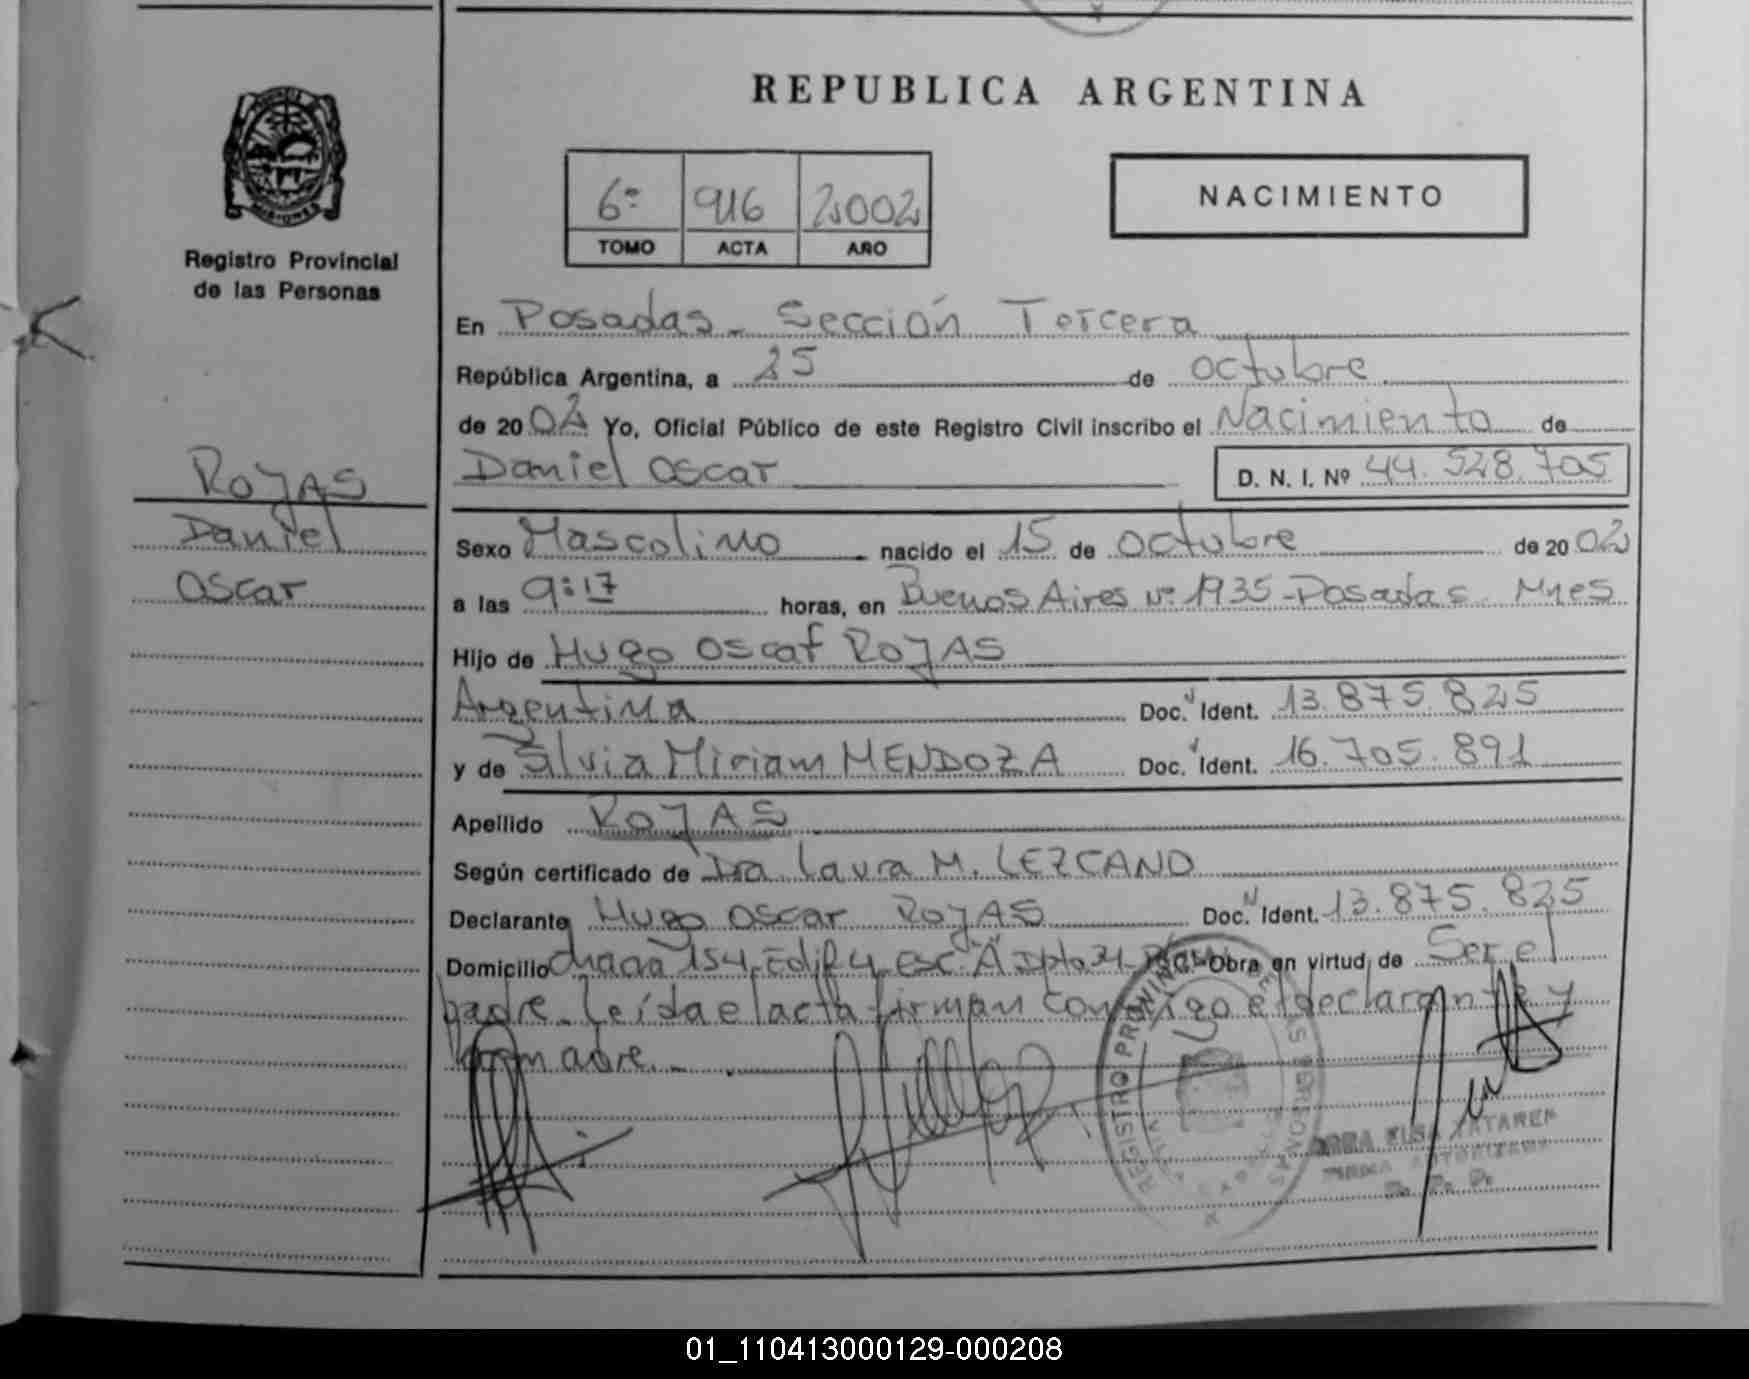 REPUBLICA ARGENTINA
6º 916 2002
TOMO ACTA AÑO
NACIMIENTO
Registro Provincial
de las Personas
En Posadas - Sección Tercera
República Argentina, a 25 de octubre
de 2002 Yo, Oficial Público de este Registro Civil inscribo el Nacimiento de
Daniel Oscar D. N. I. Nº 44.528.705
ROJAS
Daniel
Oscar
Sexo Mascolino nacido el 15 de octubre de 2002
a las 9:17 horas, en Buenos Aires nº 1935 - Posadas - Mnes
Hijo de Hugo Oscar ROJAS
Argentina Doc. Ident. 13.875.825
y de Silvia Miriam MENDOZA Doc. Ident. 16.705.891
Apellido ROJAS
Según certificado de Dra. Laura M. LEZCANO
Declarante Hugo Oscar ROJAS Doc. Ident. 13.875.825
Domicilio chacra 154, Edif 4, esc "A" Dpto Obra en virtud de Ser el
padre. Leída el acta firman conmigo el declarante y
madre.
REGISTRO PROVINCIAL DE LAS PERSONAS
ELSA
FIRMA AUTORIZADA
01_110413000129-000208